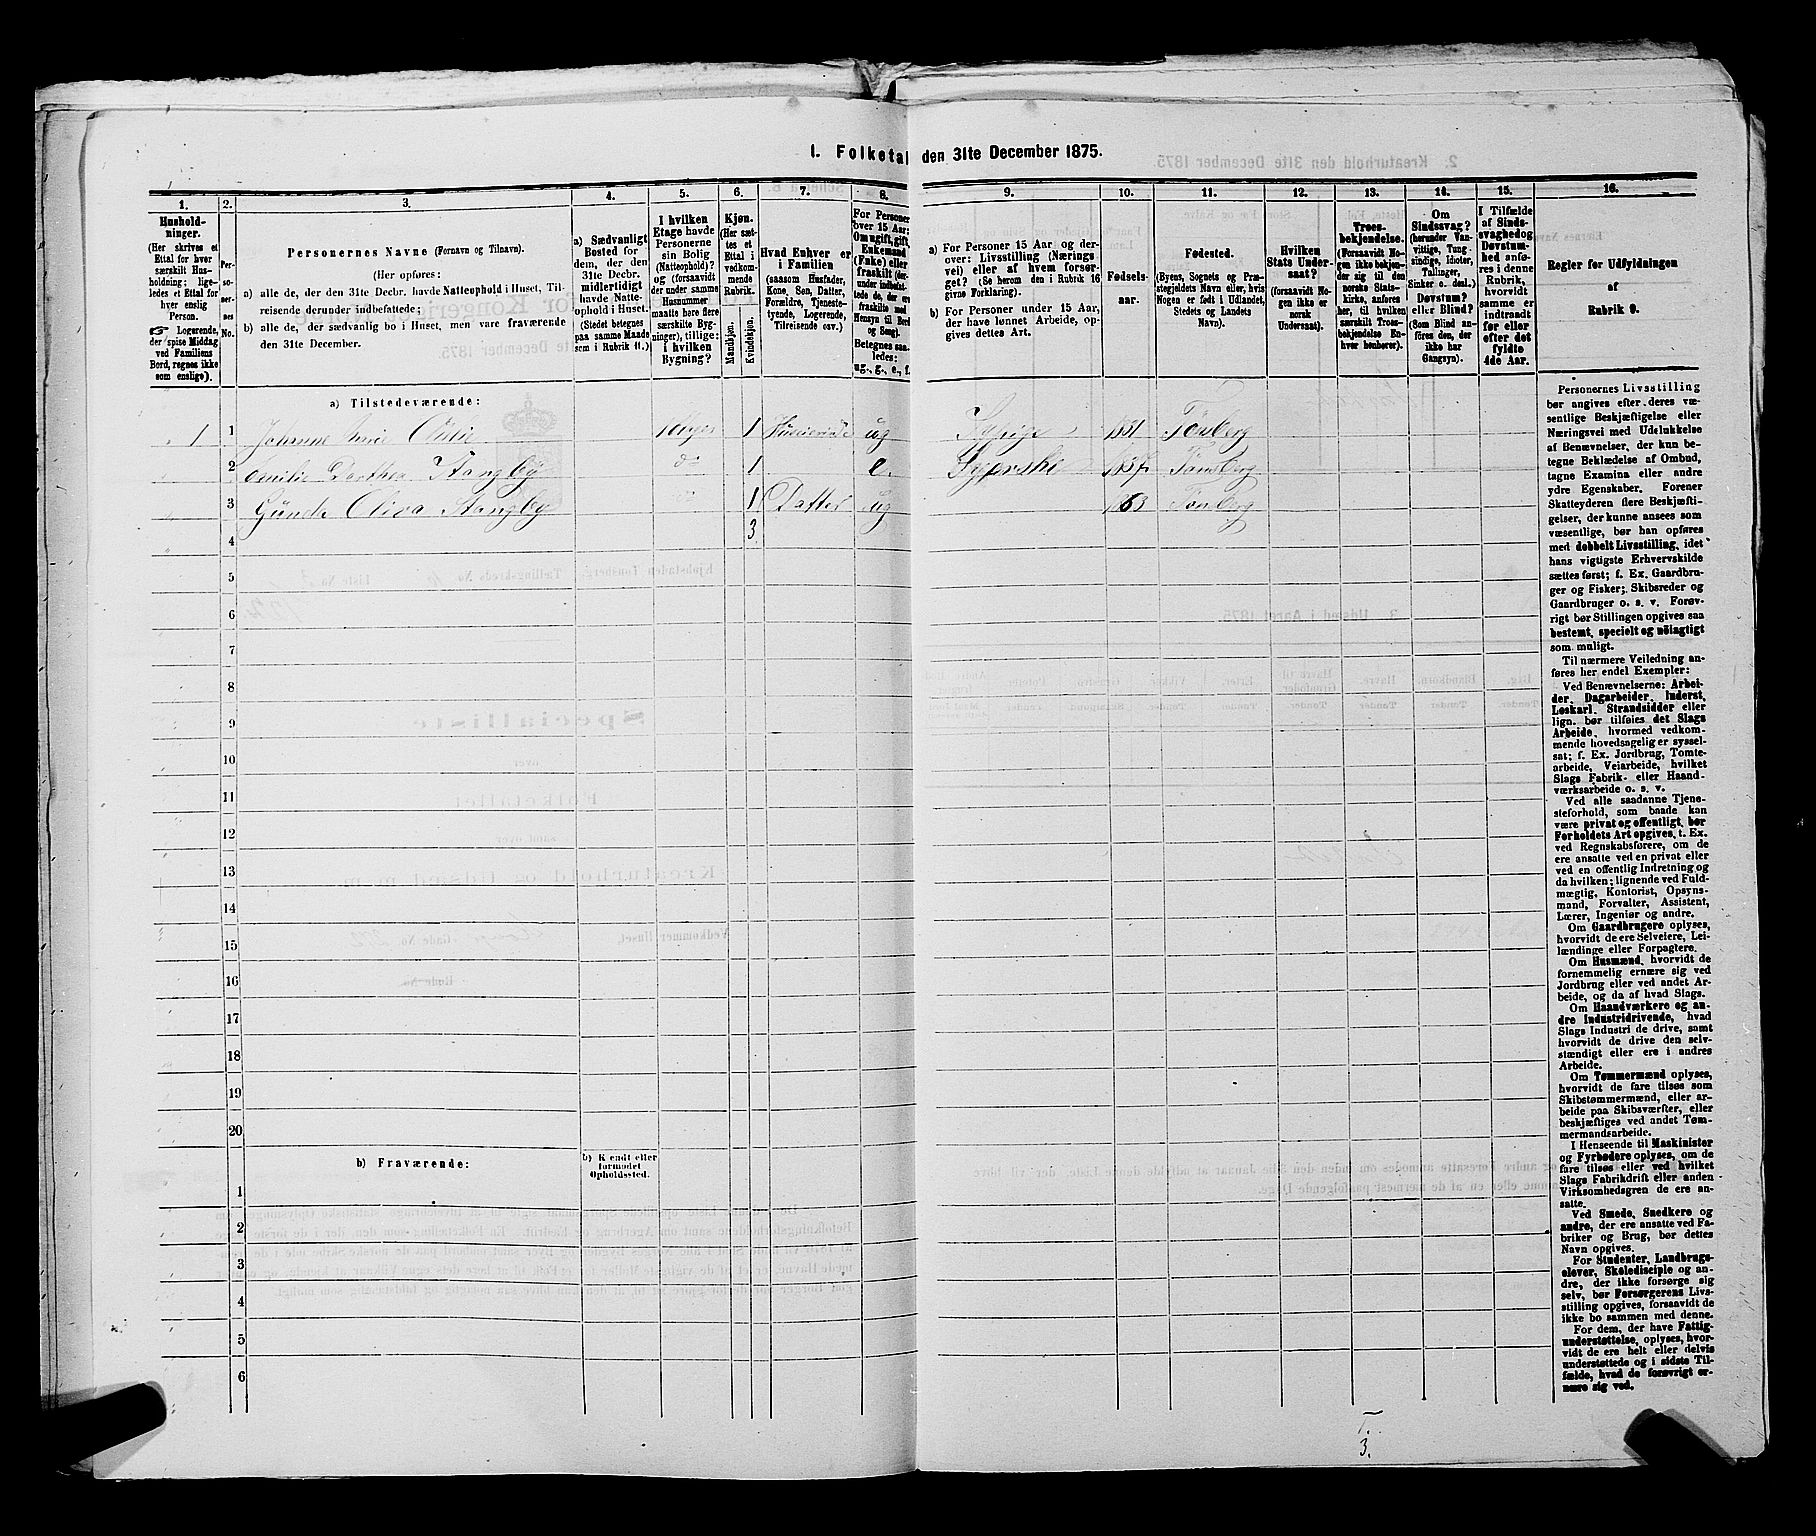 1. Folketal den 31te December 1875.
1. 2. 3. 4. 5. 6. 7. 8. 9. 10. 11. 12. 13. 14. 15. 16.
Hushold-
ninger.
(Her skrives et
Ettal for hver
særskilt Hus-
holdning; lige-
ledes et Ettal for
hver enslig
Person.
☞ Logerende,
der spise Middag
ved Familiens
Bord, regnes ikke
som enslige).
Per-
so-
ner-
nes
No.
Personernes Navne (Fornavn og Tilnavn).
(Her opføres:
a) alle de, der den 31te Decbr. havde Natteophold i Huset, Til-
reisende derunder indbefattede;
b) alle de, der sædvanlig bo i Huset, men vare fraværende
den 31te December.
a) Sædvanligt
Bosted for
dem, der den
31te Decbr.
midlertidigt
havde Natte-
ophold i Huset.
(Stedet betegnes
paa samme Maade
som i Rubrik 11.)
I hvilken
Etage havde
Personerne
sin Bolig
(Natteophold)?
og (forsaavidt
der under samme
Husnummer
maatte høre flere
særskilte Byg-
ninger), tillige:
i hvilken
Bygning?
Kjøn.
(Her sæt-
tes et
Ettal i
vedkom-
mende
Rubrik.
Mandkjøn.
Kvindekjøn.
Hvad Enhver er
i Familien
(saasom Husfader,
Kone, Søn, Datter,
Forældre, Tjeneste-
tyende, Logerende,
Tilreisende osv.)
For Personer
over 15 Aar:
Om ugift, gift,
Enkemand
(Enke) eller
fraskilt (der-
under indbefat-
tede de, der ere
fraskilte med
Hensyn til Bord
og Seng).
Betegnes saa-
ledes:
ug., g., e., f.
a) For Personer 15 Aar og der-
over: Livsstilling (Nærings-
vei) eller af hvem forsør-
get? (Se herom den i Rubrik 16
givne Forklaring).
b) For Personer under 15 Aar,
der have lønnet Arbeide, op-
gives dettes Art.
Fødsels-
aar.
Fødested.
(Byens, Sognets og Præ-
stegjeldets Navn eller, hvis
Nogen er født i Udlandet,
Stedets og Landets
Navn).
Hvilken
Stats Under-
saat?
(forsaavidt No-
gen ikke er
norsk
Undersaat).
Troes-
bekjendelse.
(Forsaavidt No-
gen ikke bekjen-
der sig til den
norske Stats-
kirke, anføres
her, til hvilken
særskilt Troes-
bekjendelse En-
hver henhører).
Om
Sindssvag?
(herunder Van-
vittige, Tung-
sindige, Idioter,
Tallinger,
Sinker o. desl.)
Døvstum?
eller Blind?
(Som Blind an-
føres den, der
ikke har
Gangsyn).
I Tilfælde
af Sinds-
svaghed og
Døvstum-
hed anfø-
res i denne
Rubrik,
hvorvidt
samme er
indtraadt
før eller
efter det
fyldte
4de Aar.
Regler for Udfyldningen
af
Rubrik 9.
a) Tilstedeværende:
1 1 Johanne Marie 1 ug 1831
2 Emilie Dorthea Stangeby do 1 e. 1837 Tønsberg
3 Gunda Oliva Stangeby do 1 Datter ug 1863 Tønsberg
4 3
5
6
7
8
9
10
11
12
13
14
15
16
17
18
19
20
b) Fraværende: b) Kjendt eller
formodet
Opholdssted.
1
2
3
4
5
6
Personernes Livsstilling
bør angives efter deres væ-
sentlige Beskjæftigelse eller
Næringsvei med Udelukkelse
af Benævnelser, der kun be-
tegne Beklædelse af Ombud,
tagne Examina eller andre
ydre Egenskaber. Forener
Skatteyderen flere Beskjæfti-
gelser, der kunne ansees som
væsentlige, bør han opføres
med dobbelt Livsstilling, idet
hans vigtigste Erhvervskilde
sættes først; f. Ex. Gaardbru-
ger og Fisker; Skibsreder og
Gaardbruger o. s. v. Forøv-
rigt bør Stillingen opgives saa
bestemt, specielt og nøiagtigt
som muligt.
Til nærmere Veiledning an-
føres her endel Exempler:
Ved Benævnelserne: Arbei-
der, Dagarbeider, Inderst,
Løskarl, Strandsidder eller
lign. bør tilføies det Slags
Arbeide, hvormed vedkom-
mende hovedsagelig er syssel-
sat; f. Ex. Jordbrug, Tomte-
arbeide, Veiarbeide, hvilket
Slags Fabrik- eller Haand-
værksarbeide o. s. v.
Ved alle saadanne Tjene-
steforhold, som baade kan
være privat og offentligt, bør
Forholdets Art opgives, t. Ex.
ved Regnskabsførere, om de
ere ansatte ved en privat eller
ved en offentlig Indretning og
da hvilken; lignende ved Fuld-
mægtig, Kontorist, Opsyns-
mand, Forvalter, Assistent,
Lærer, Ingeniør og andre.
Om Gaardbrugere oplyses,
hvorvidt de ere Selveiere, Lei-
lændinge eller Forpagtere.
Om Husmænd, hvorvidt de
fornemmelig ernære sig ved
Jordbrug eller ved andet Ar-
beide, og da af hvad Slags.
Om Haandværkere og an-
dre Industridrivende, hvad
Slags Industri de drive, samt
hvorvidt de drive den selv-
stændigt eller ere i andres
Arbeide.
Om Tømmermænd oplyses,
hvorvidt de fare tilsøs som
Skibstømmermænd, eller ar-
beide paa Skibsværfter, eller
beskjæftiges ved andet Tøm-
mermandsarbeide.
I Henseende til Maskinister
og Fyrbødere oplyses, om de
fare tilsøs eller ved hvilket
Slags Fabrikdrift eller anden
Virksomhedsgren de ere an-
satte.
Ved Smede, Snedkere og
andre, der ere ansatte ved Fa-
briker og Brug, bør dettes
Navn opgives.
For Studenter, Landbrugs-
elever, Skoledisciple og an-
dre, der ikke forsørge sig
selv, bør Forsørgerens Livs-
stilling opgives, forsaavidt de
ikke bo sammen med denne.
For dem, der have Fattig-
understøttelse, oplyses, hvor-
vidt de ere helt eller delvis
understøttede og i sidste Til-
fælde, hvad de forøvrigt er-
nære sig ved.
T.
3.